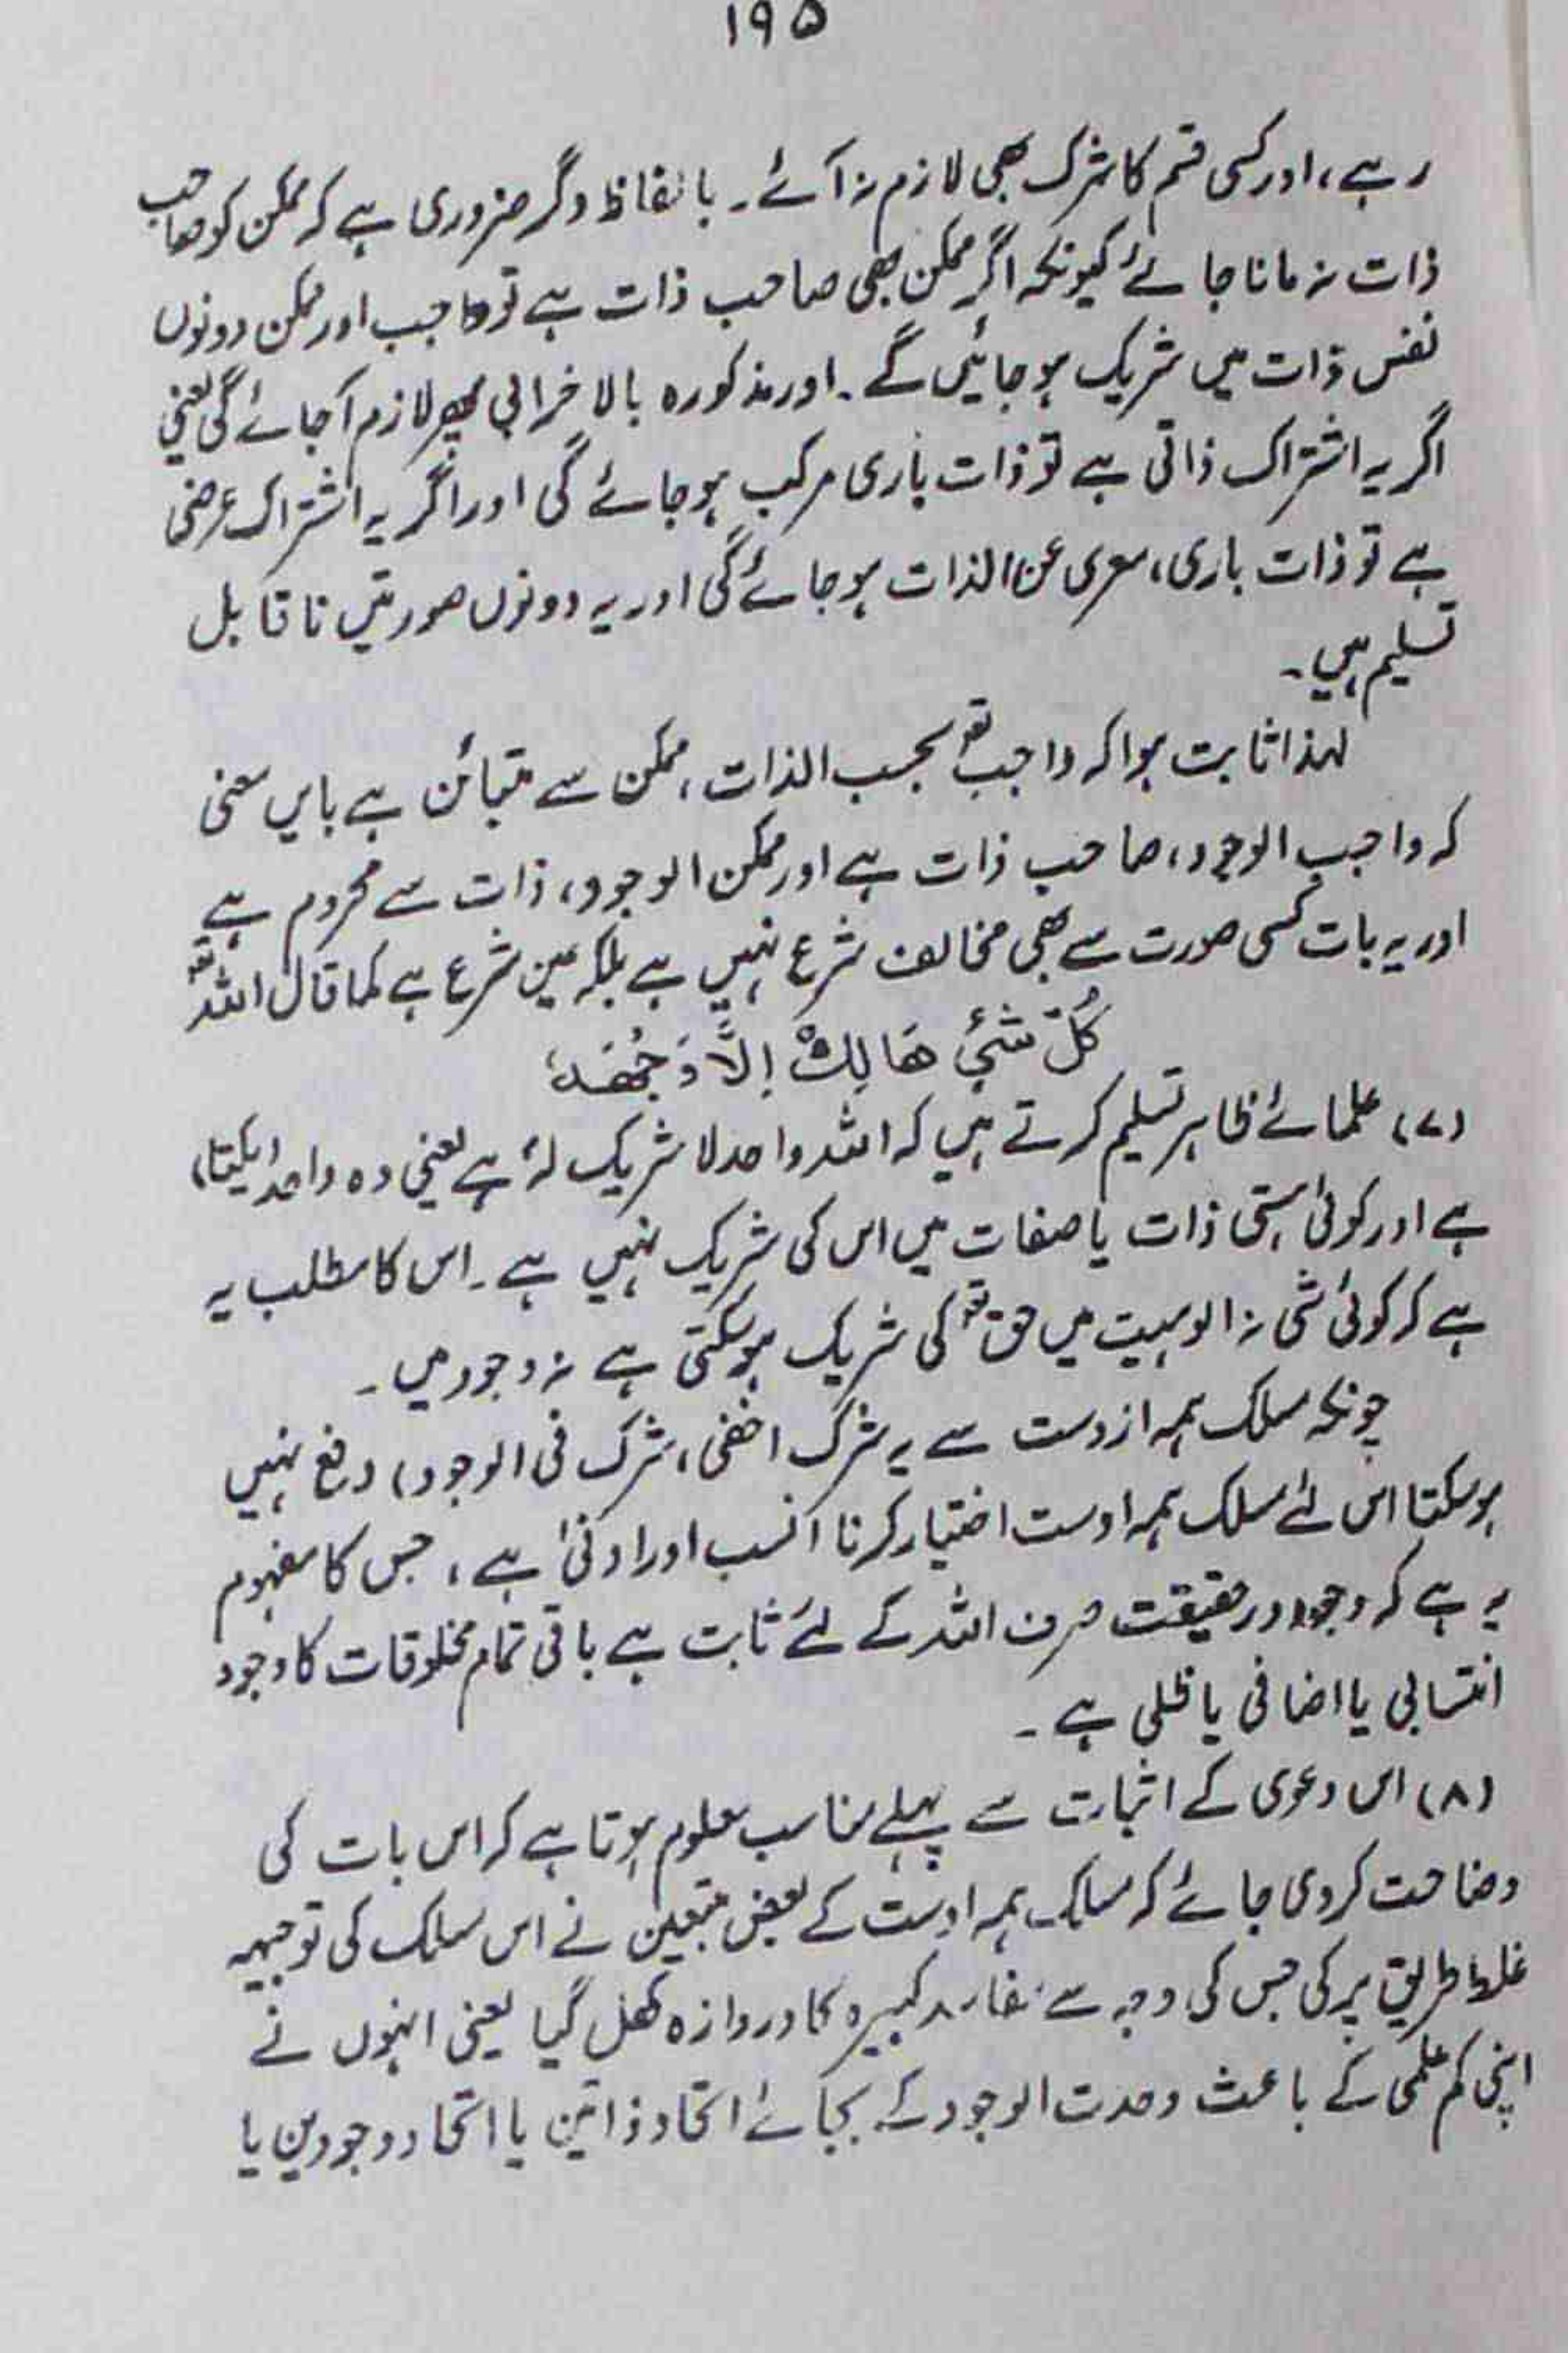 ۱۹۵
رہے، اور کسی قسم کا شرک بھی لازم نہ آئے۔ بالفاظ دگر ضروری ہے کہ ممکن کو صاحب
ذات نہ مانا جائے کیونکہ اگر ممکن بھی صاحب ذات ہے تو واجب اور ممکن دونوں
نفس ذات میں شریک ہو جائیں گے۔ اور مذکورہ بالا خرابی پھر لازم آجائے گی یعنی
اگر یہ اشتراک ذاتی ہے تو ذات باری مرکب ہو جائے گی اور اگر یہ اشتراک عرضی
ہے تو ذات باری، معری عن الذات ہو جائے گی اور یہ دونوں صورتیں نا قابل
تسلیم ہیں۔
لہذا ثابت ہوا کہ واجب تعہ بحسب الذات، ممکن سے متبائن ہے بایں معنی
کہ واجب الوجود، صاحب ذات ہے اور ممکن الوجود، ذات سے محروم ہے
اور یہ بات کسی صورت سے بھی مخالف شرع نہیں ہے بلکہ عین شرع ہے کما قال اللہ تعہ
کُلُّ شَیْئٍ ھَالِکٌ اِلَّا وَجْھَہٗ
(۷) علمائے ظاہر تسلیم کرتے ہیں کہ اللہ واحد لا شریک لہٗ ہے یعنی وہ واحد (یکتا)
ہے اور کوئی ہستی ذات یا صفات میں اس کی شریک نہیں ہے۔ اس کا مطلب یہ
ہے کہ کوئی شی نہ الوہیت میں حق تعہ کی شریک ہو سکتی ہے نہ وجود میں۔
چونکہ مسلک ہمہ ازوست سے یہ شرک اخفی (شرک فی الوجود) دفع نہیں
ہو سکتا اس لئے مسلک ہمہ اوست اختیار کرنا انسب اور اولیٰ ہے، جس کا مفہوم
یہ ہے کہ وجود در حقیقت صرف اللہ کے لئے ثابت ہے باقی تمام مخلوقات کا وجود
انتسابی یا اضافی یا ظلی ہے۔
(۸) اس دعوی کے اثبات سے پہلے مناسب معلوم ہوتا ہے کہ اس بات کی
وضاحت کر دی جائے کہ مسلک ہمہ اوست کے بعض متبعین نے اس مسلک کی توجیہہ
غلط طریق پر کی جس کی وجہ سے مفاسد کبیرہ کا دروازہ کھل گیا یعنی انہوں نے
اپنی کم علمی کے باعث وحدت الوجود کے بجائے اتحاد ذاتین یا اتحاد وجودین یا